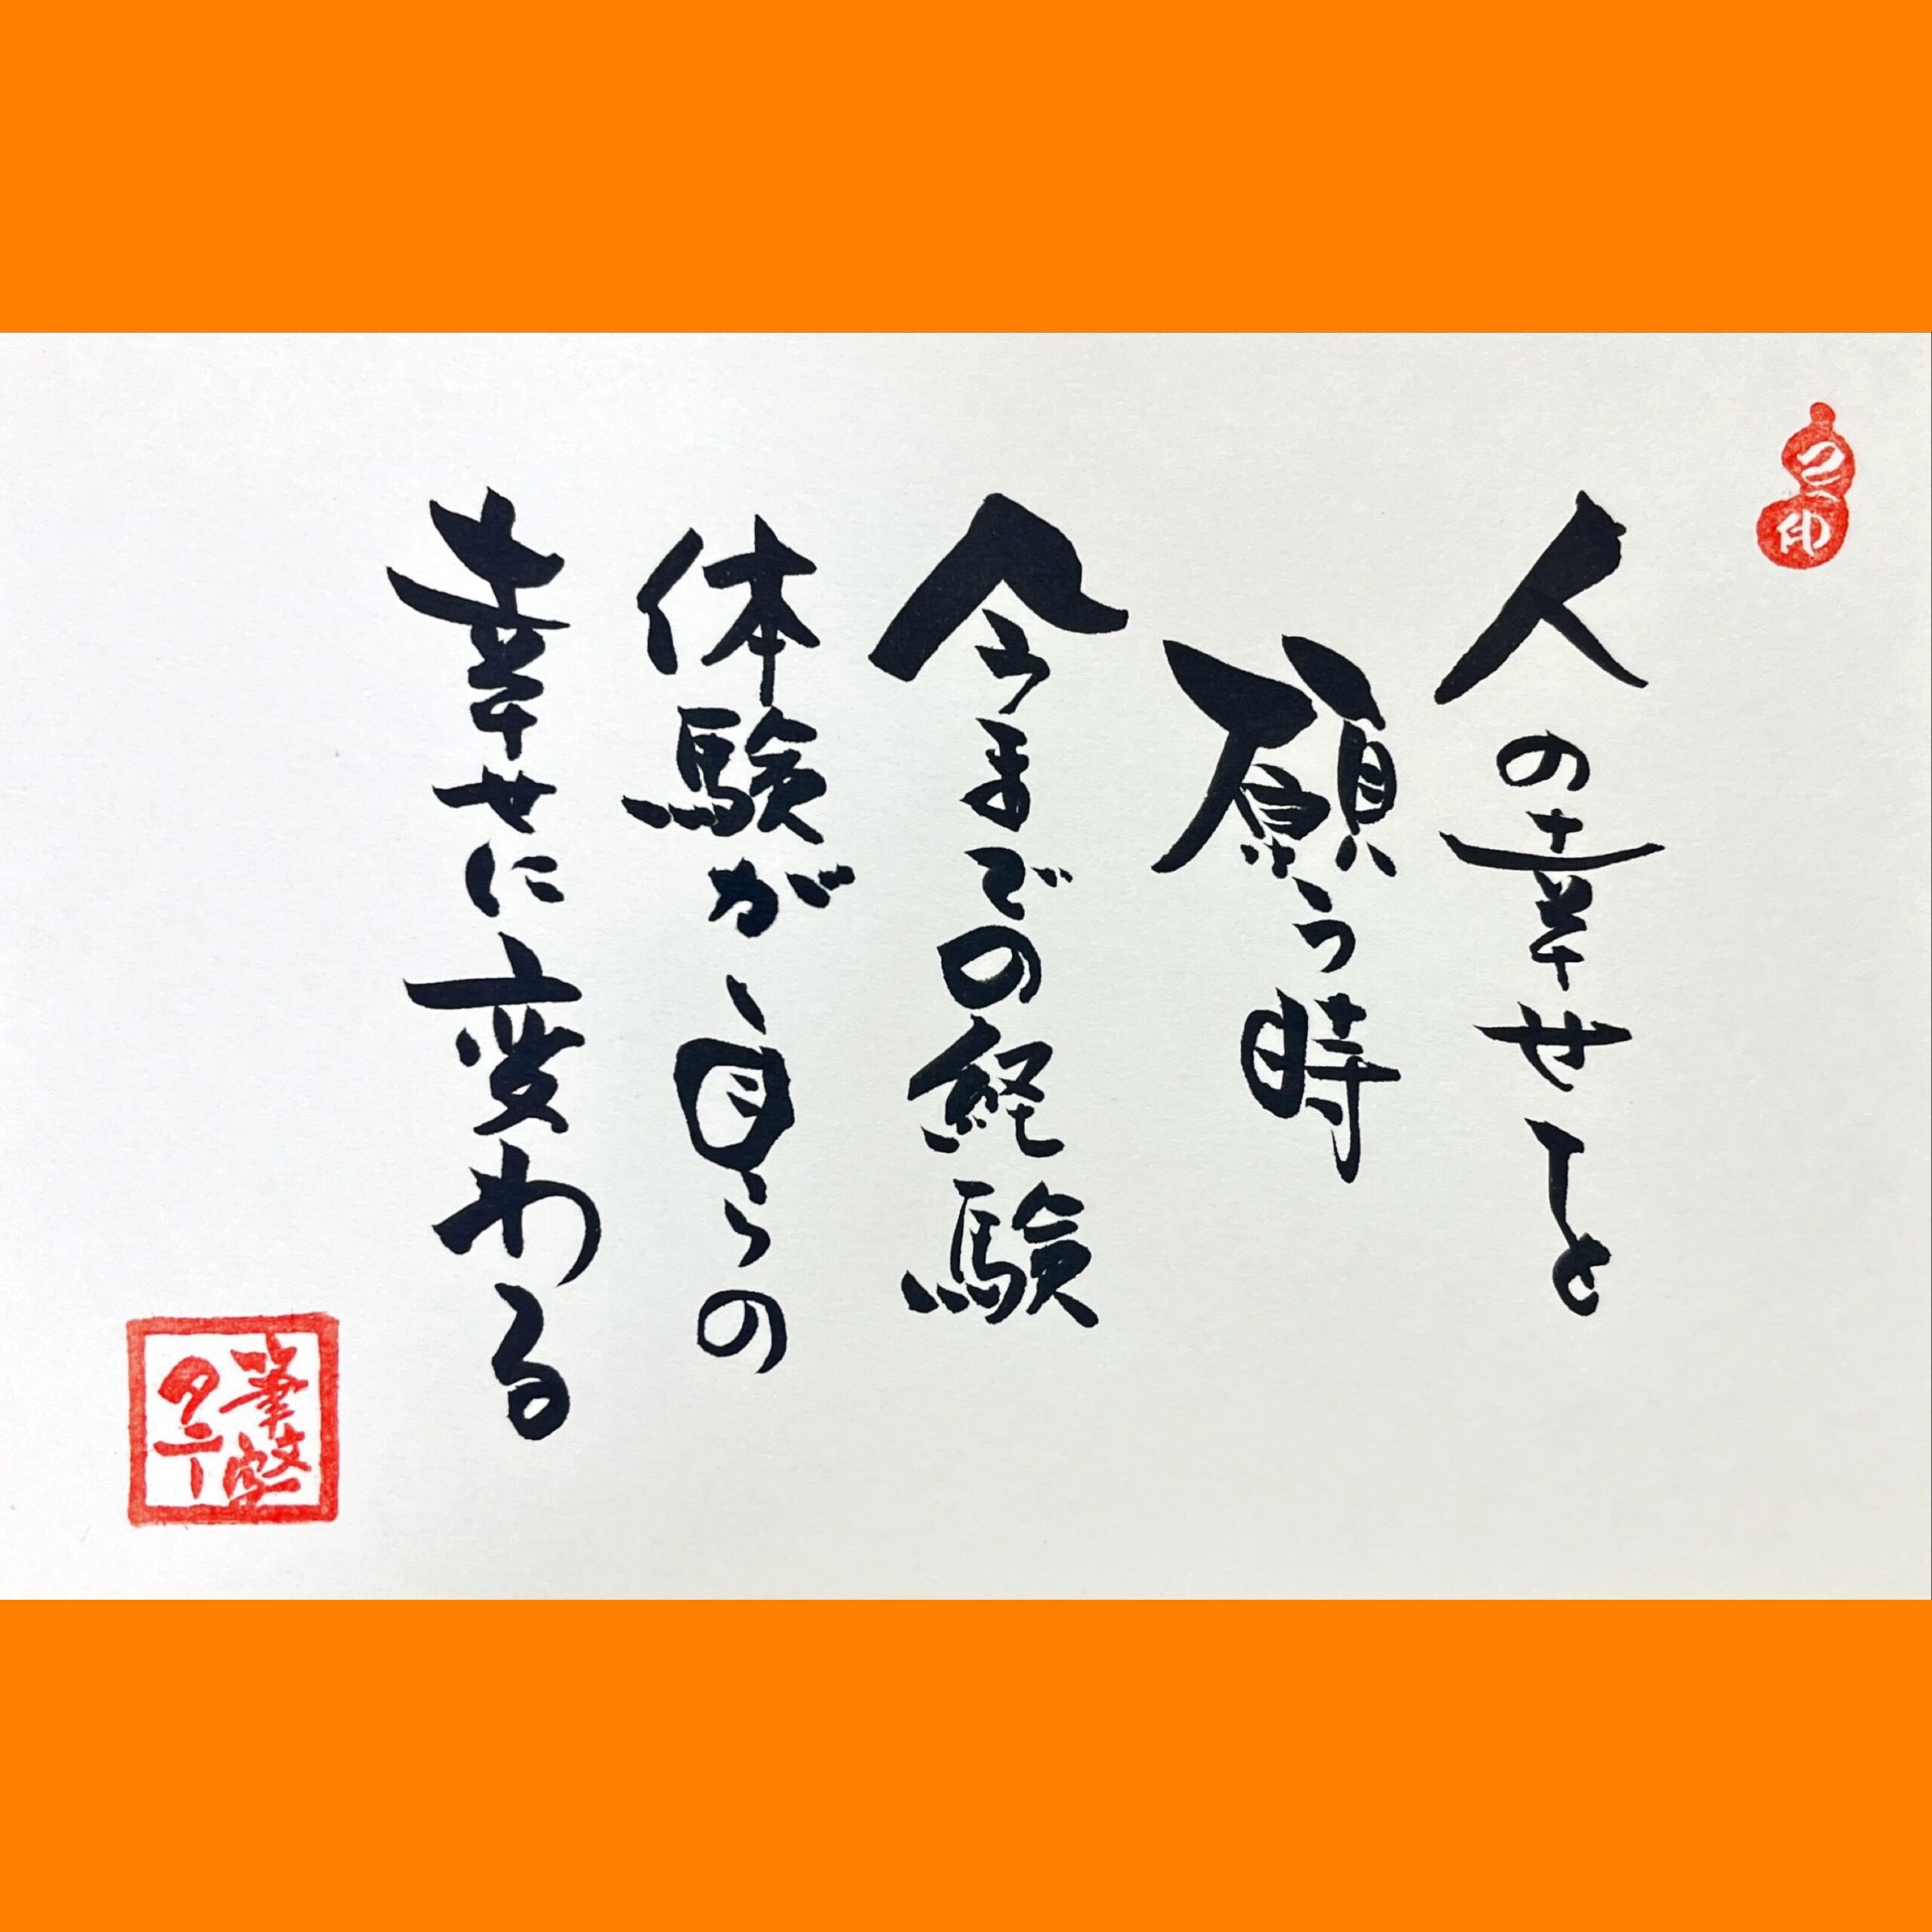 人の幸せを
願う時
今までの経験
体験が自らの
幸せに変わる
筆文字
タニー